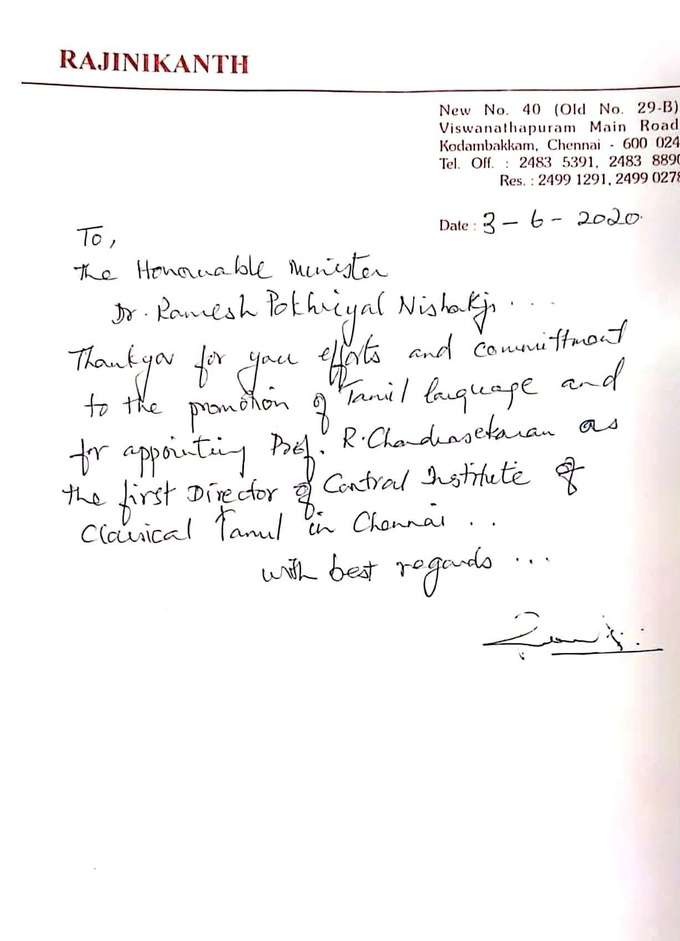 RAJINIKANTH
New No. 40 (Old No. 29-B)
Viswanathapuram Main Road
Kodambakkam, Chennai - 600 024
Tel. Off. : 2483 5391, 2483 8890
Res. : 2499 1291, 2499 0278
Date : 3 - 6 - 2020.
To,
The Honourable Minister
Dr. Ramesh Pokhriyal Nishakji . . .
Thankyou for your efforts and committment
to the promotion of Tamil language and
for appointing Prof. R. Chandrasekaran as
the first Director of Central Institute of
Classical Tamil in Chennai . .
with best regards . . .